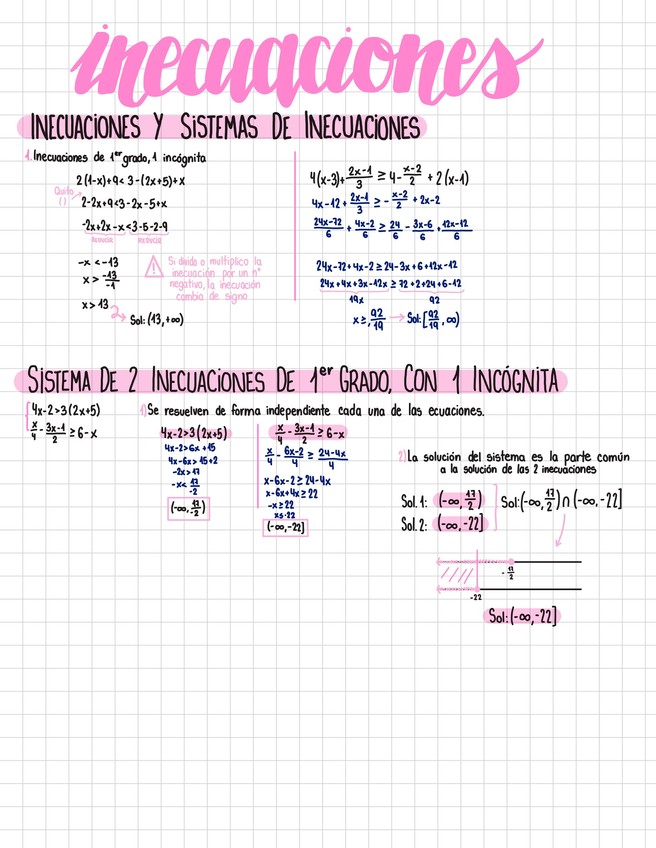 inecuaciones
INECUACIONES Y SISTEMAS DE INECUACIONES
1. Inecuaciones de 1er grado, 1 incógnita
2(1-x)+9<3-(2x+5)+x
Quito ()
2-2x+9<3-2x-5+x
-2x+2x-x<3-5-2-9
REDUCIR REDUCIR
-x<-13
x > -13/-1
x>13
Sol: (13,+∞)
Si divido o multiplico la
inecuación por un nº
negativo, la inecuación
cambia de signo
4(x-3)+ 2x-1/3 ≥ 4- x-2/2 + 2(x-1)
4x-12+ 2x-1/3 ≥ - x-2/2 + 2x-2
24x-72/6 + 4x-2/6 ≥ 24/6 - 3x-6/6 + 12x-12/6
24x-72+4x-2≥24-3x+6+12x-12
24x+4x+3x-12x ≥ 72+2+24+6-12
19x 92
x≥ 92/19 → Sol: [92/19, ∞)
SISTEMA DE 2 INECUACIONES DE 1er GRADO, CON 1 INCÓGNITA
4x-2>3(2x+5)
x/4 - 3x-1/2 ≥ 6-x
1) Se resuelven de forma independiente cada una de las ecuaciones.
4x-2>3(2x+5)
4x-2>6x+15
4x-6x>15+2
-2x>17
-x< 17/-2
(-∞, 17/-2)
x/4 - 3x-1/2 ≥ 6-x
x/4 - 6x-2/4 ≥ 24-4x/4
x-6x-2≥24-4x
x-6x+4x≥22
-x≥22
x≤-22
(-∞,-22]
2) La solución del sistema es la parte común
a la solución de las 2 inecuaciones
Sol. 1: (-∞, 17/2)
Sol. 2: (-∞,-22]
Sol: (-∞, 17/2) ∩ (-∞,-22]
- 17/2
-22
Sol: (-∞,-22]